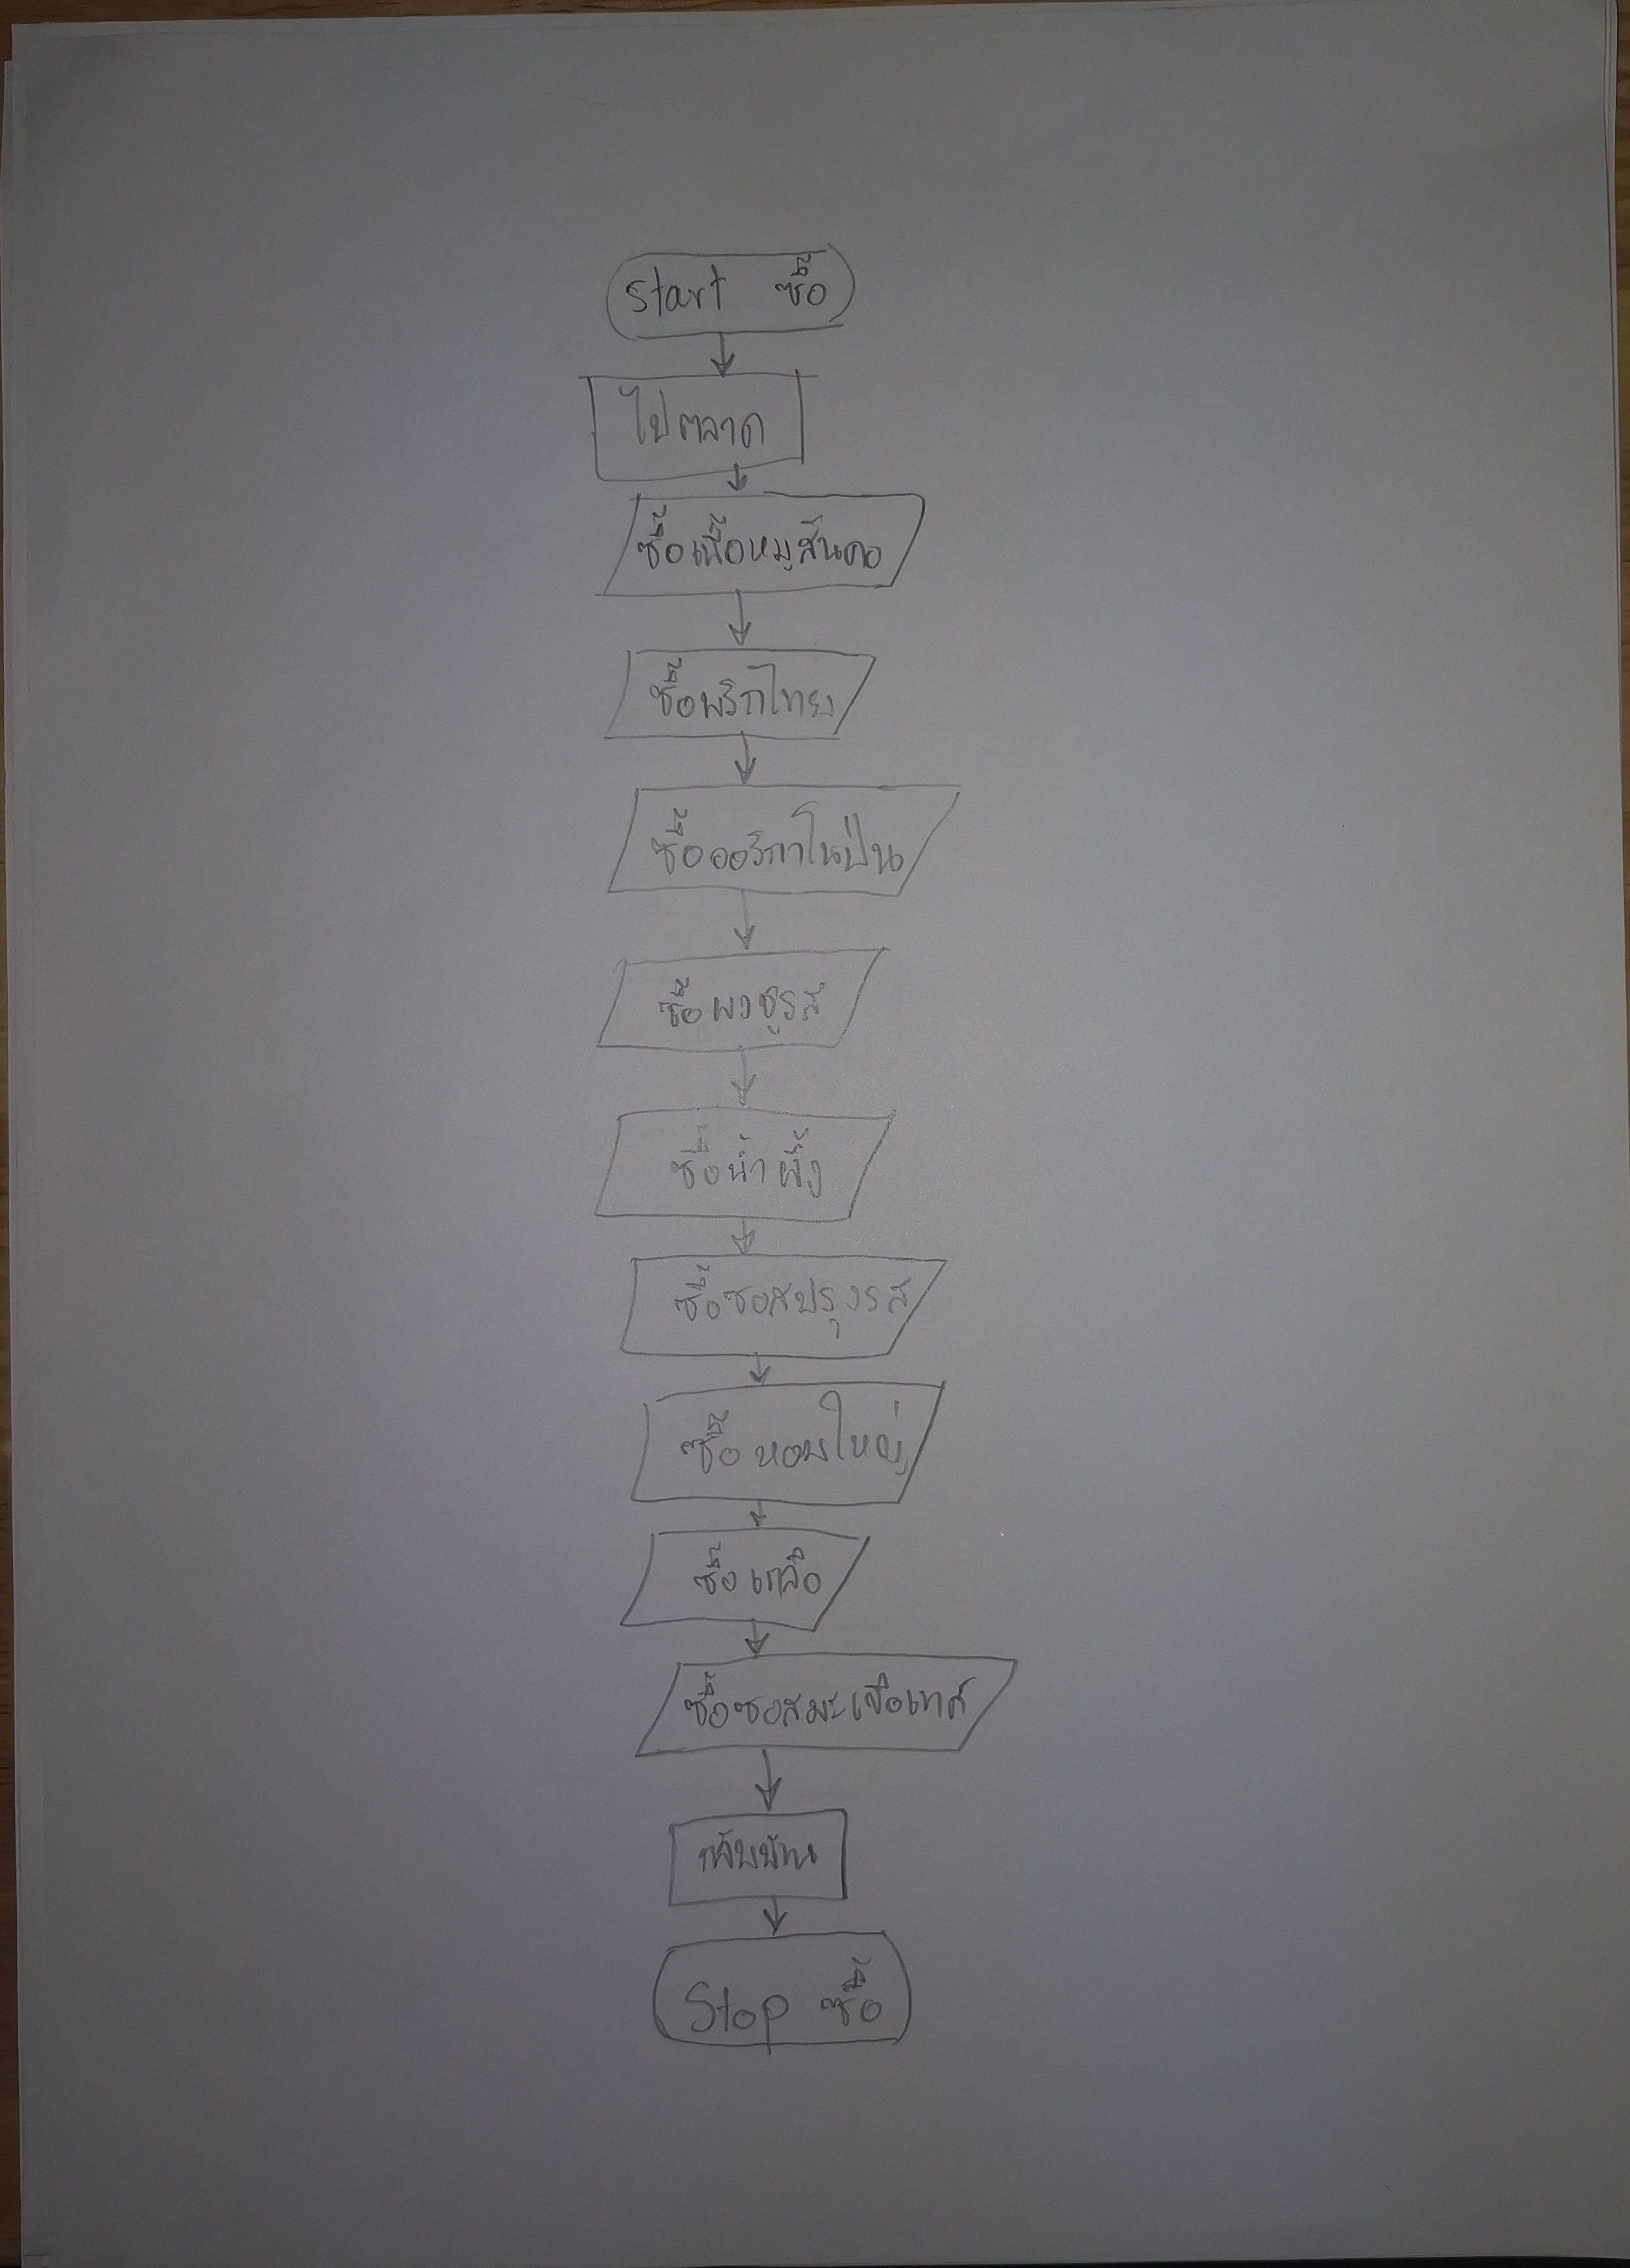 start ซื้อ
ไปตลาด
ซื้อเนื้อหมูสันคอ
ซื้อพริกไทย
ซื้อออริกาโนป่น
ซื้อผงชูรส
ซื้อน้ำผึ้ง
ซื้อซอสปรุงรส
ซื้อหอมใหญ่
ซื้อเกลือ
ซื้อซอสมะเขือเทศ
กลับบ้าน
Stop ซื้อ